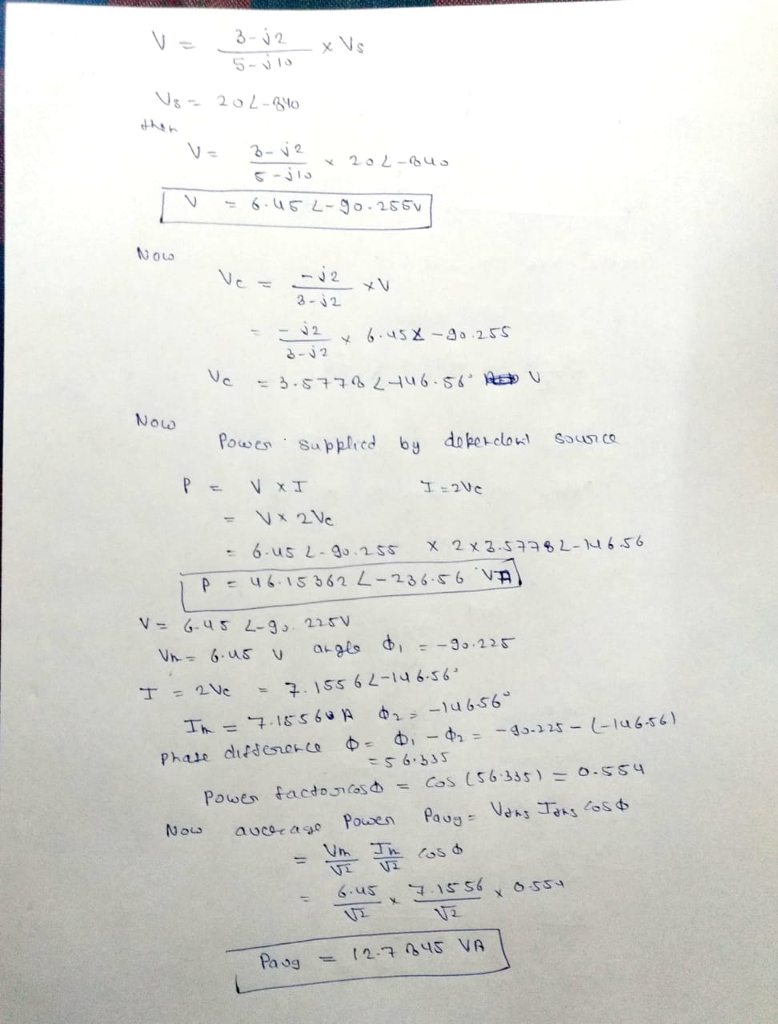 V = 3-j2 / 5-j10 × Vs
Vs = 20∠-340
then
V = 3-j2 / 5-j10 × 20∠-340
V = 6.45∠-90.255V
Now
Vc = -j2 / 3-j2 × V
= -j2 / 3-j2 × 6.45∠-90.255
Vc = 3.5778∠-146.56° V
Now
Power supplied by dependent source
P = V × I I = 2Vc
= V × 2Vc
= 6.45∠-90.255 × 2×3.5778∠-146.56
P = 46.15362∠-236.56 VA
V = 6.45∠-90.225V
Vm = 6.45 V angle ϕ₁ = -90.225
I = 2Vc = 7.1556∠-146.56°
Im = 7.1556 A ϕ₂ = -146.56°
Phase difference ϕ = ϕ₁ - ϕ₂ = -90.225 - (-146.56)
= 56.335
Power factor cosϕ = cos(56.335) = 0.554
Now average Power Pavg = Vrms Irms cosϕ
= Vm/√2 Im/√2 cosϕ
= 6.45/√2 × 7.1556/√2 × 0.554
Pavg = 12.7345 VA